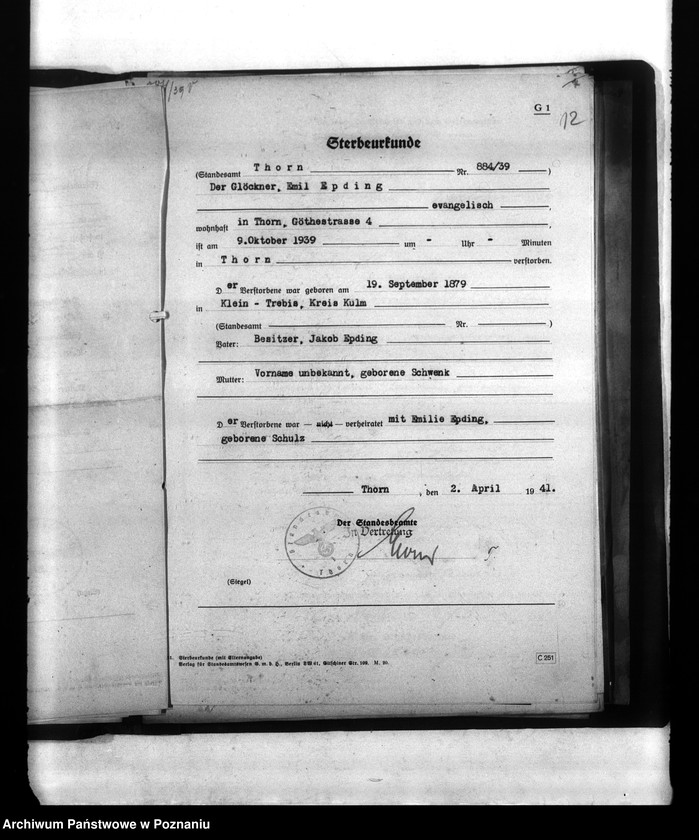 G 1
12
Sterbeurkunde
(Standesamt Thorn Nr. 884/39 )
Der Glöckner, Emil Epding
evangelisch ,
wohnhaft in Thorn, Göthestrasse 4 ,
ist am 9.Oktober 1939 um - Uhr - Minuten
in Thorn verstorben.
D er Verstorbene war geboren am 19. September 1879
in Klein - Trebis, Kreis Kulm
(Standesamt Nr. )
Vater: Besitzer, Jakob Epding
Mutter: Vorname unbekannt, geborene Schwenk
D er Verstorbene war — nicht — verheiratet mit Emilie Epding,
geborene Schulz
Thorn , den 2. April 19 41.
Der Standesbeamte
In Vertretung
(Siegel)
Sterbeurkunde (mit Elternangabe)
Verlag für Standesamtswesen G. m. b. H., Berlin SW 61, Gitschiner Str. 109.
C 251
Archiwum Państwowe w Poznaniu